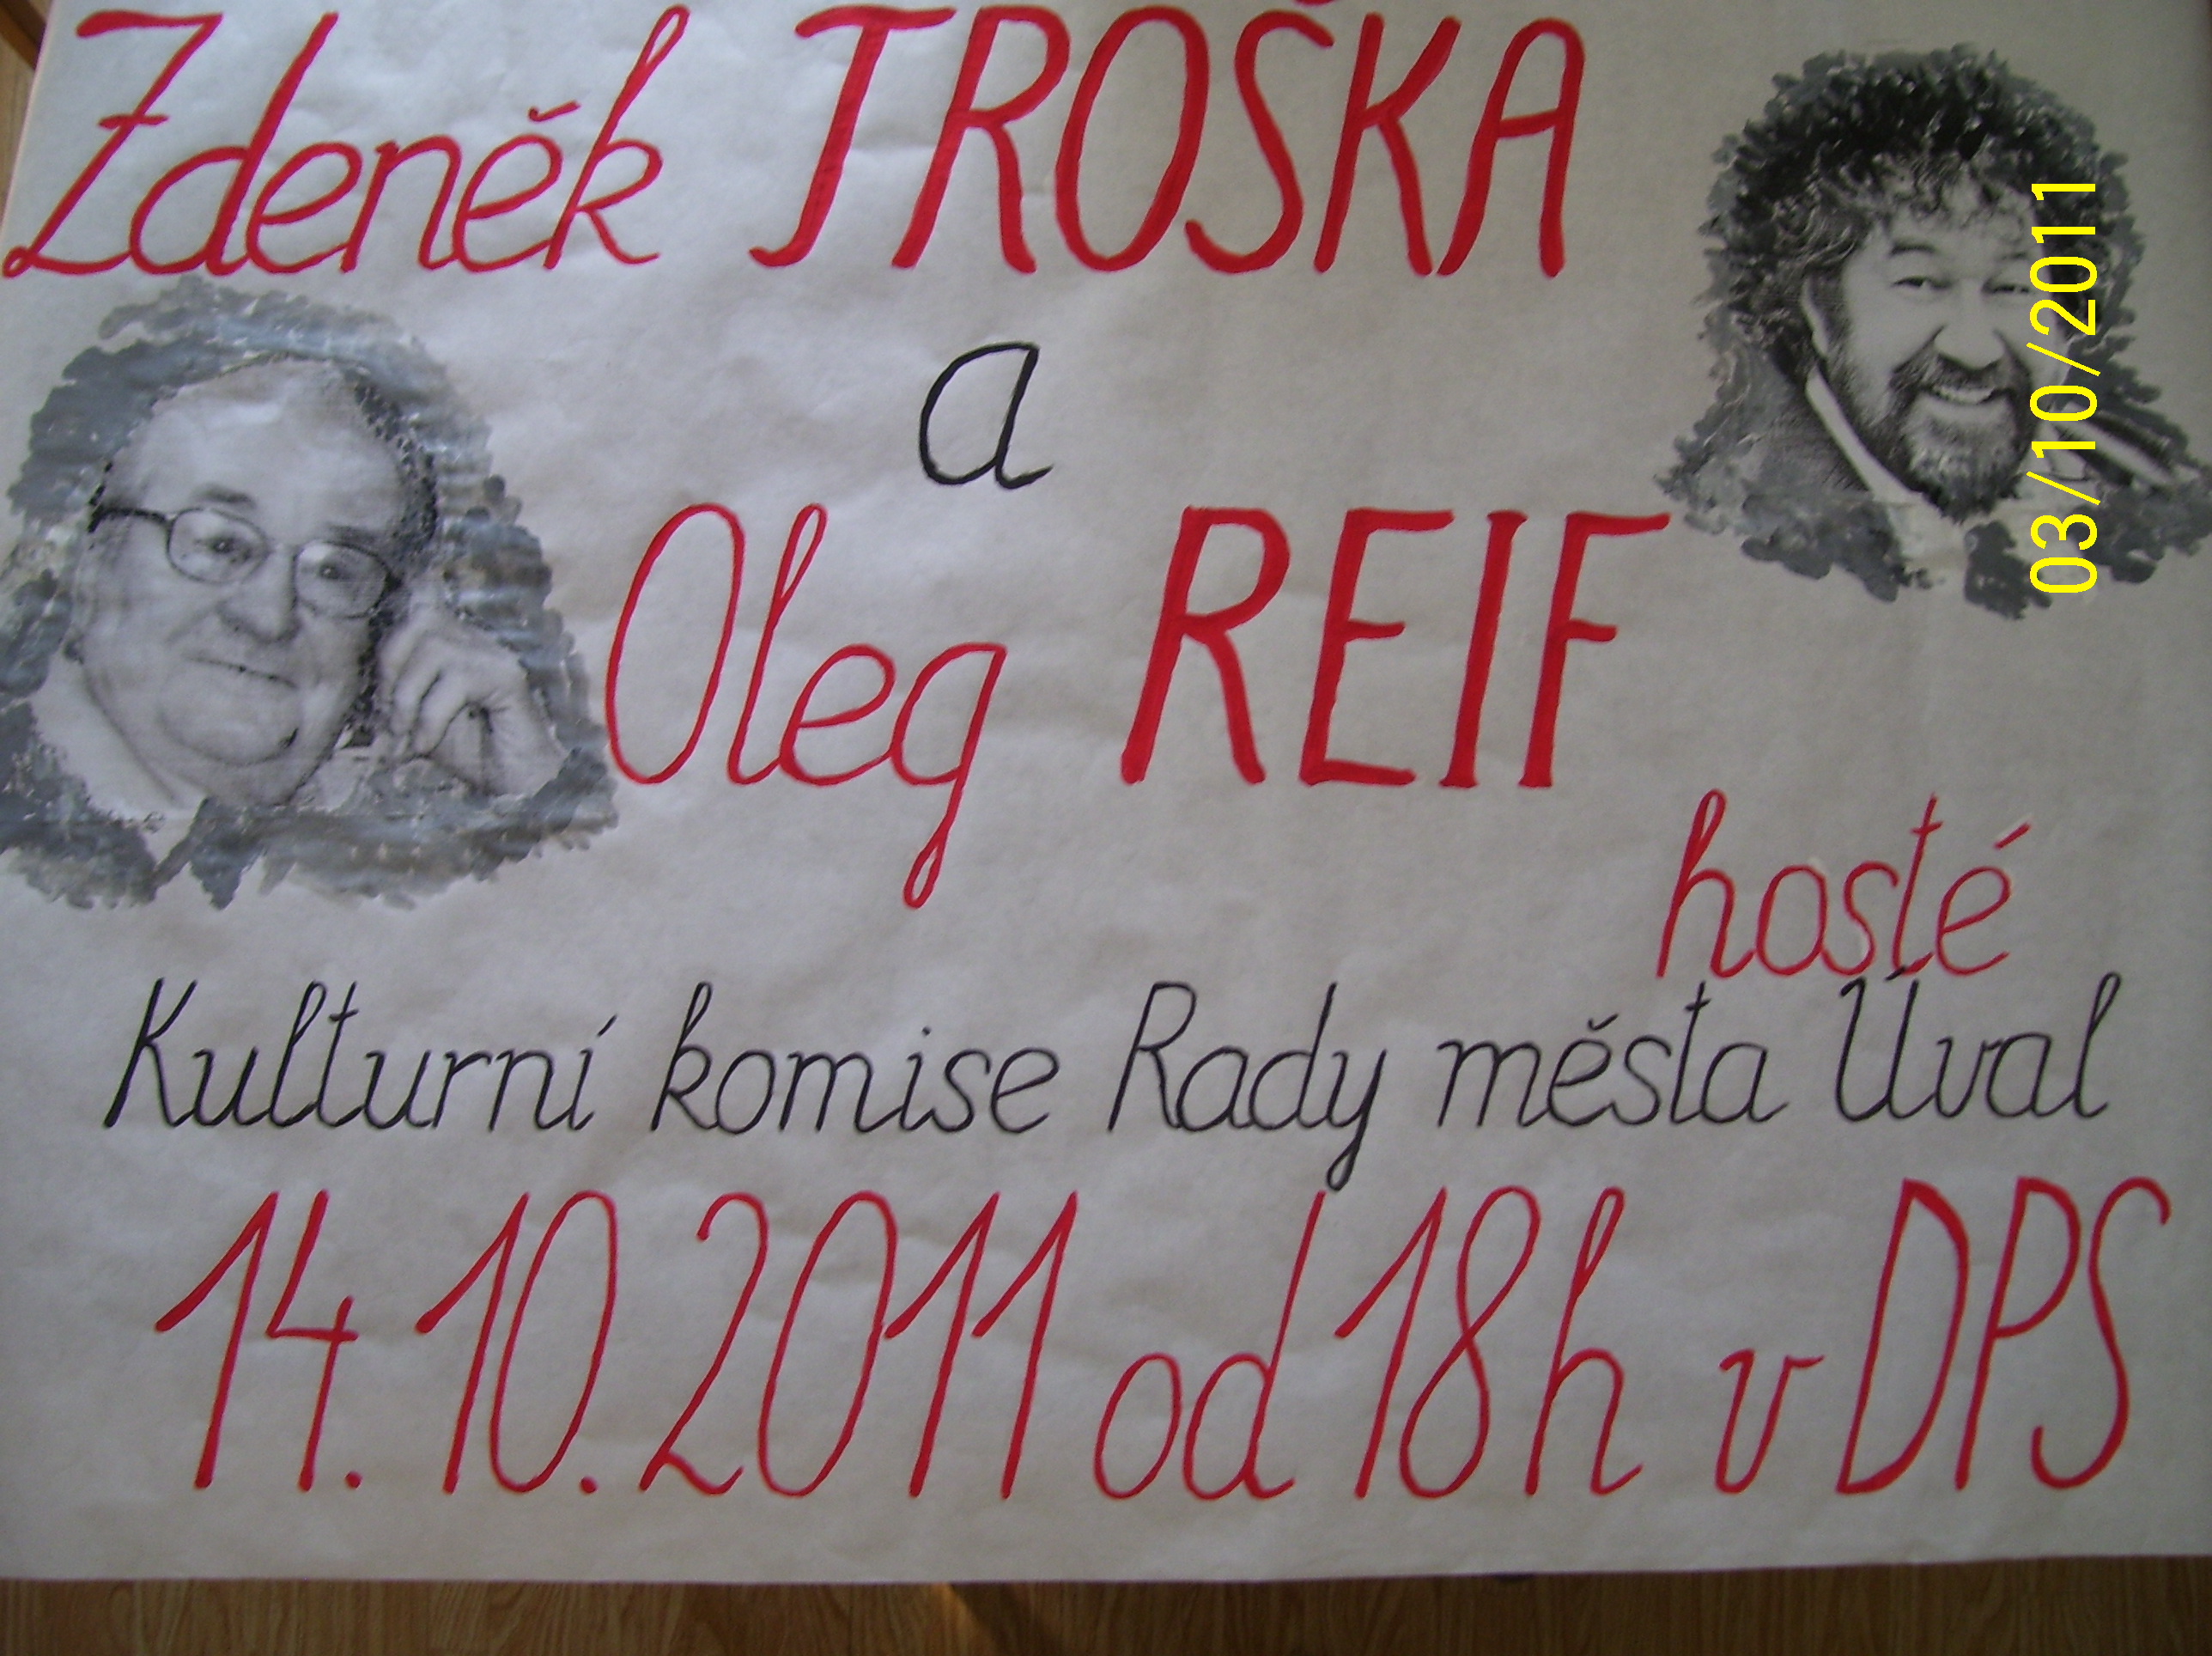 Zdeněk TROŠKA
a
Oleg REIF
hosté
Kulturní komise Rady města Úval
14.10.2011 od 18h v DPS
03/10/2011